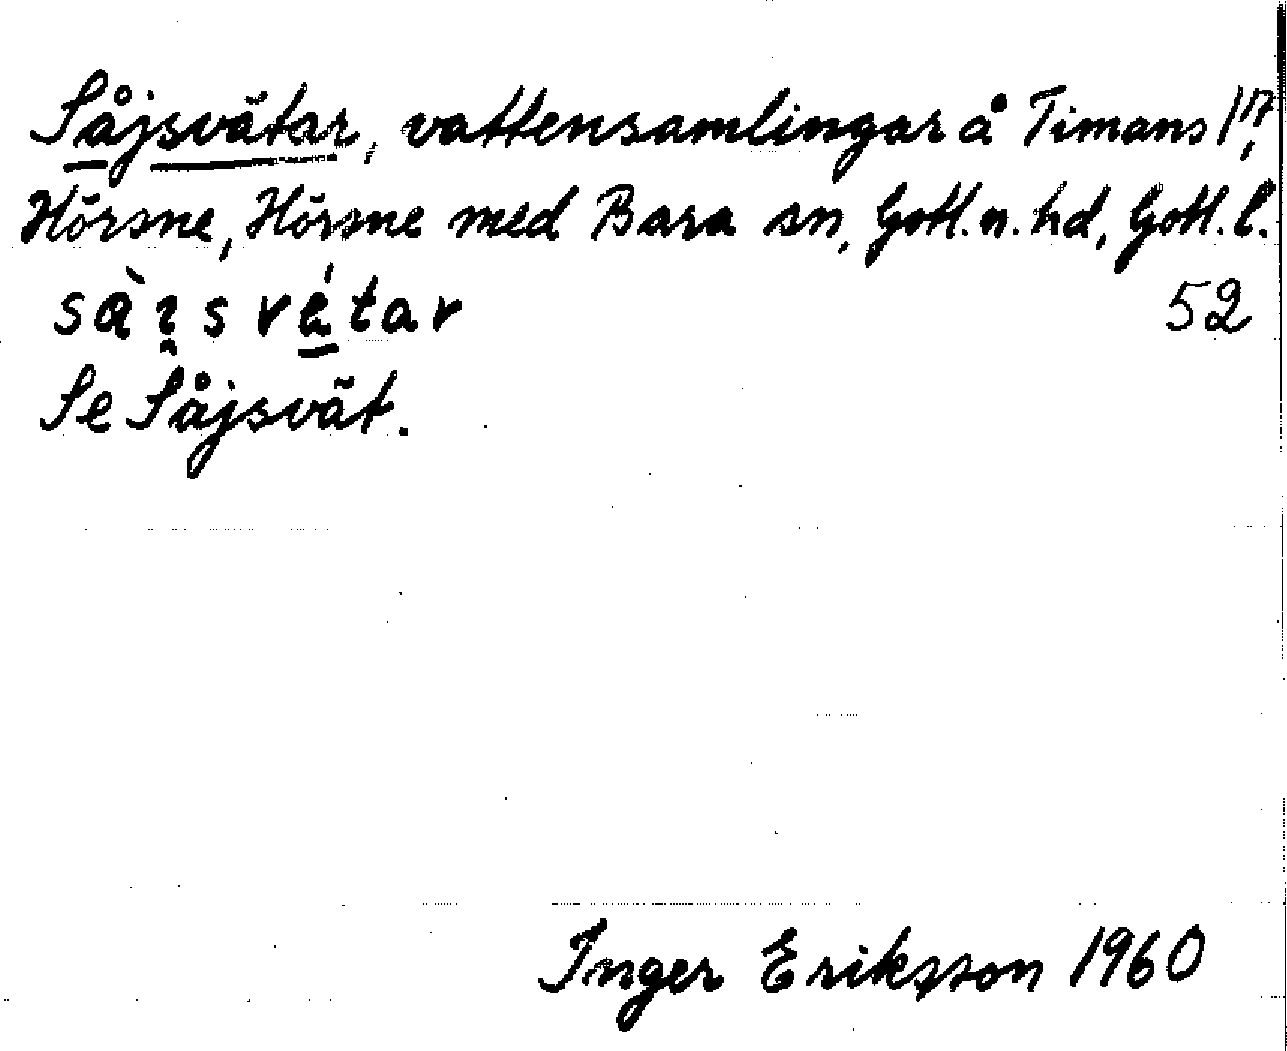 Såjsvätar, vattensamlingar å Timans 1/7,
Hörsne, Hörsne med Bara sn, Gotl. n. hd, Gotl. l.
52
Se Såjsvät.
Inger Eriksson 1960